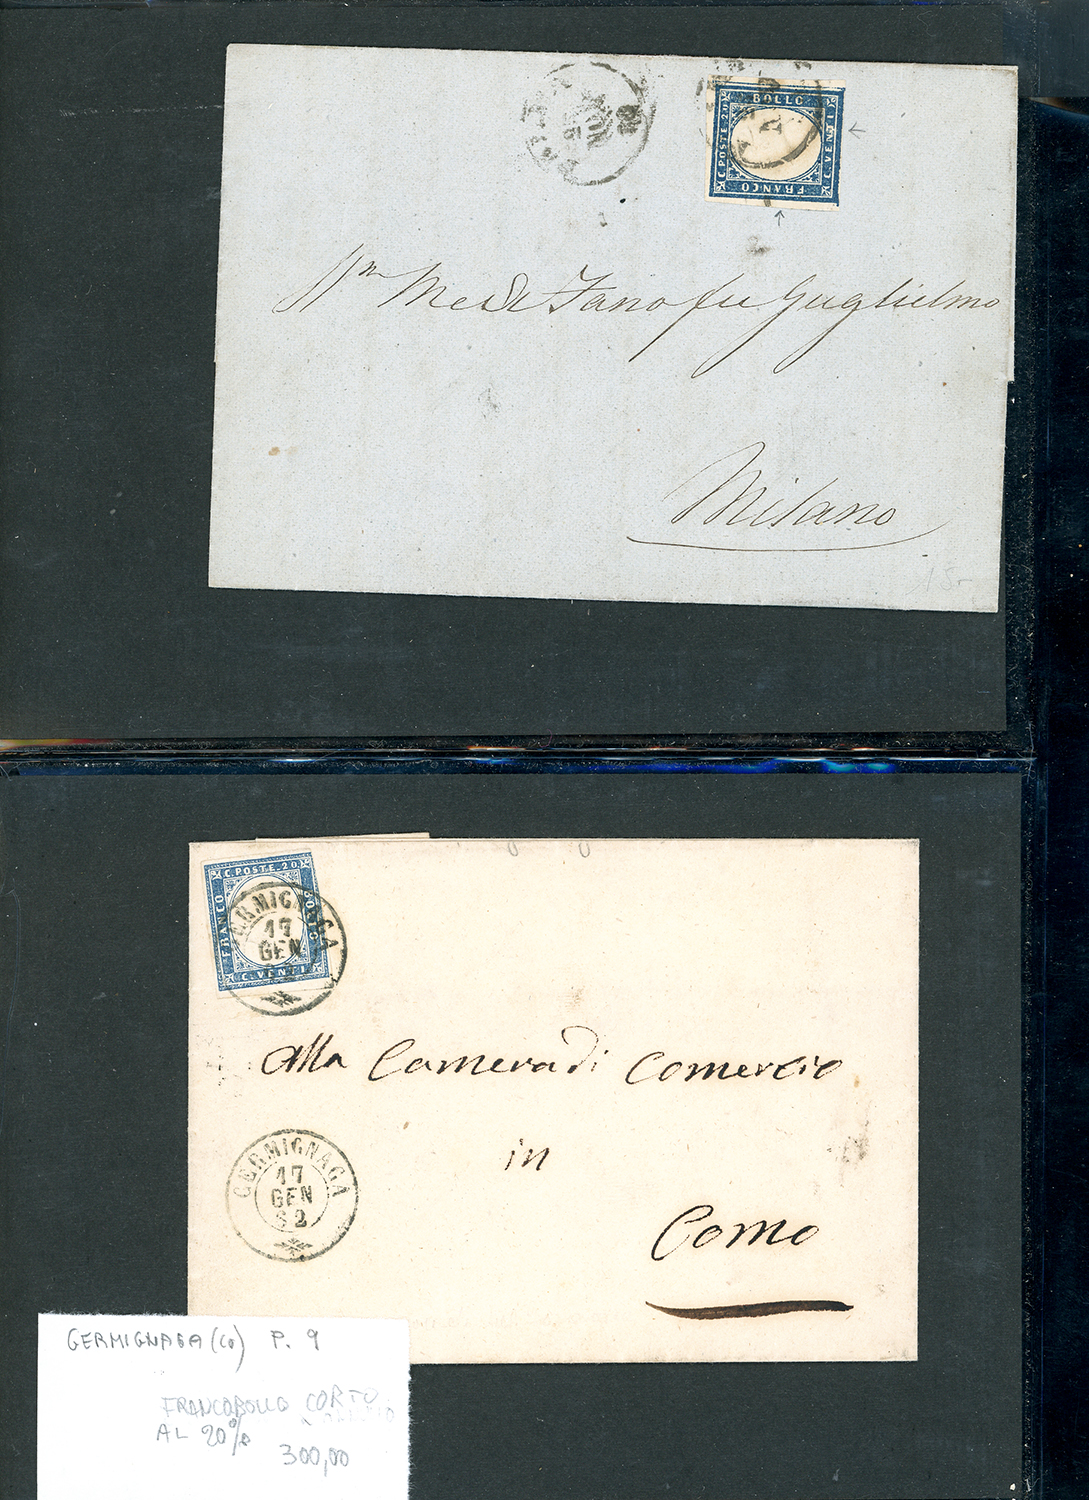 BOLLO
C. POSTE. 20
C. VENTI
FRANCO
fu Guglielmo
Milano
C. POSTE. 20
FRANCO
BOLLO
C. VENTI
GERMIGNAGA
17
GEN
alla Camera di Comercio
in
Como
GERMIGNAGA
17
GEN
62
GERMIGNAGA (CO) P. 9
FRANCOBOLLO CORTO
AL 20%
300,00